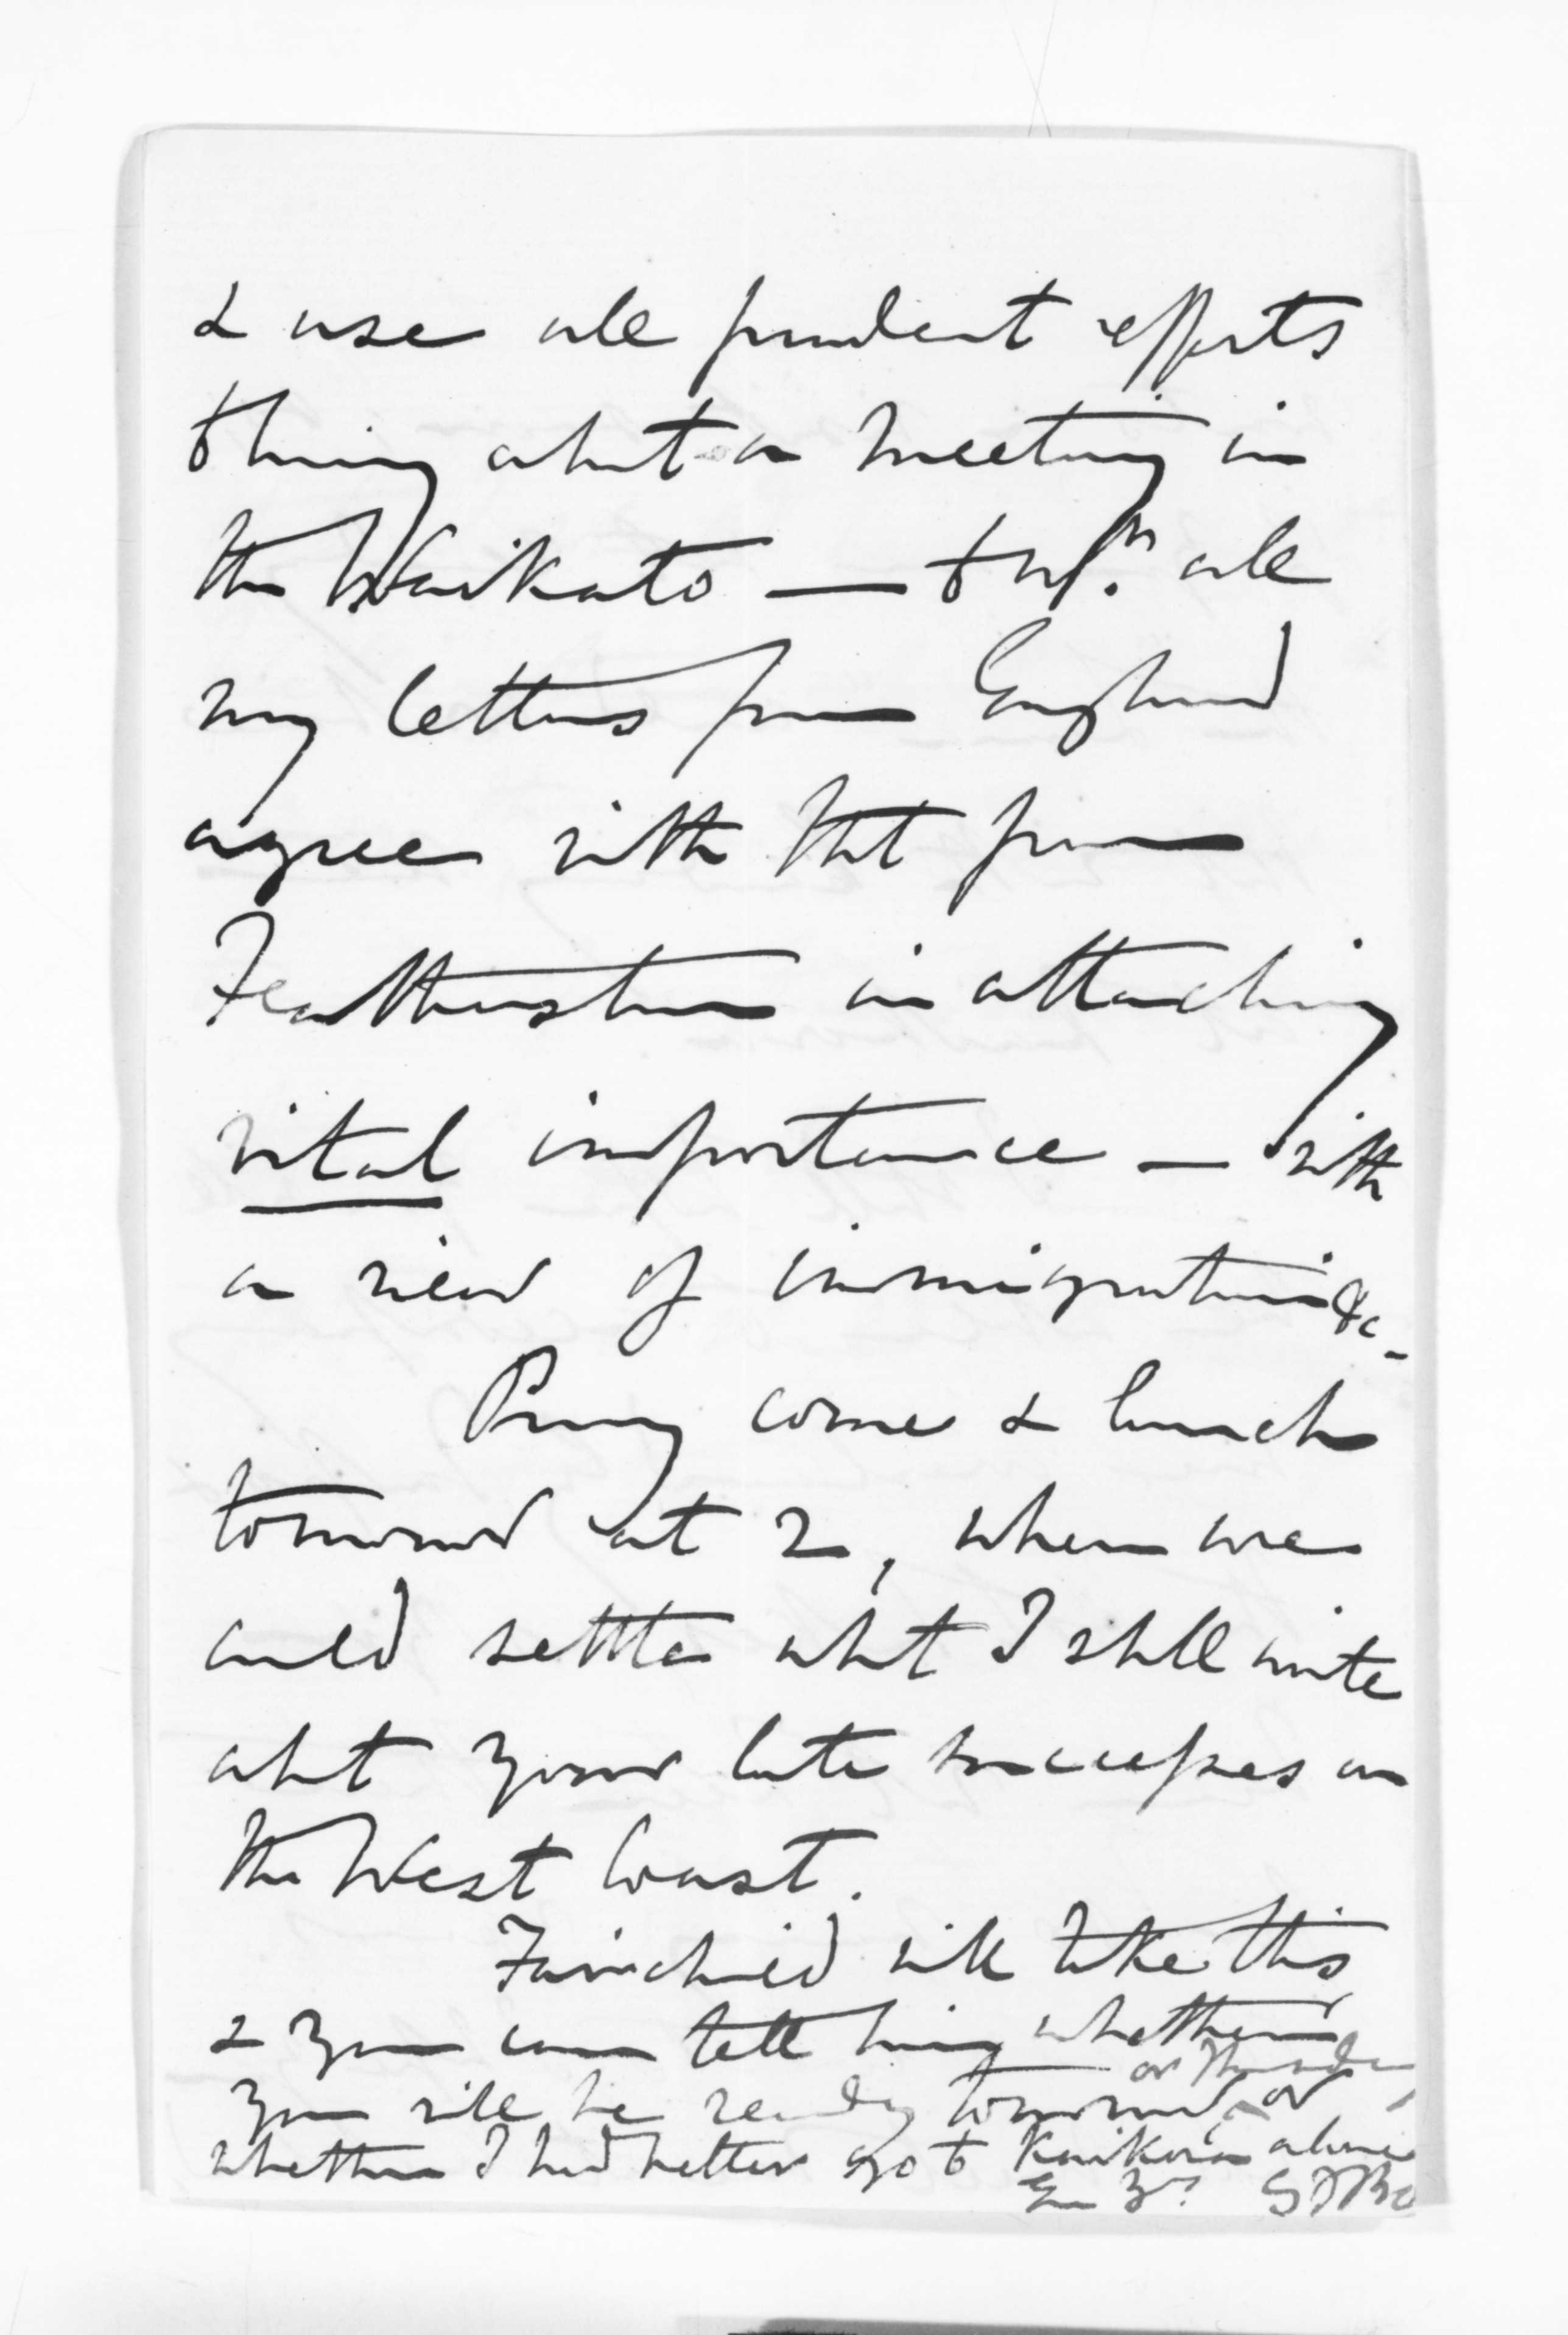 & use all prudent efforts
to bring about a meeting in
the Waikato — to wh. all
my letters from England
agree with that from
Featherston in attaching
vital importance — with
a view of immigration &c -
Pray come & lunch
tomorrow at 2, when we
could settle what I shall write
about your late successes on
the West Coast.
Fairchild will take this
& you can tell him whether
or Thursday,
you will be ready tomorrow, or
whether I had better go to Kaikora alone
Ever yrs GFB